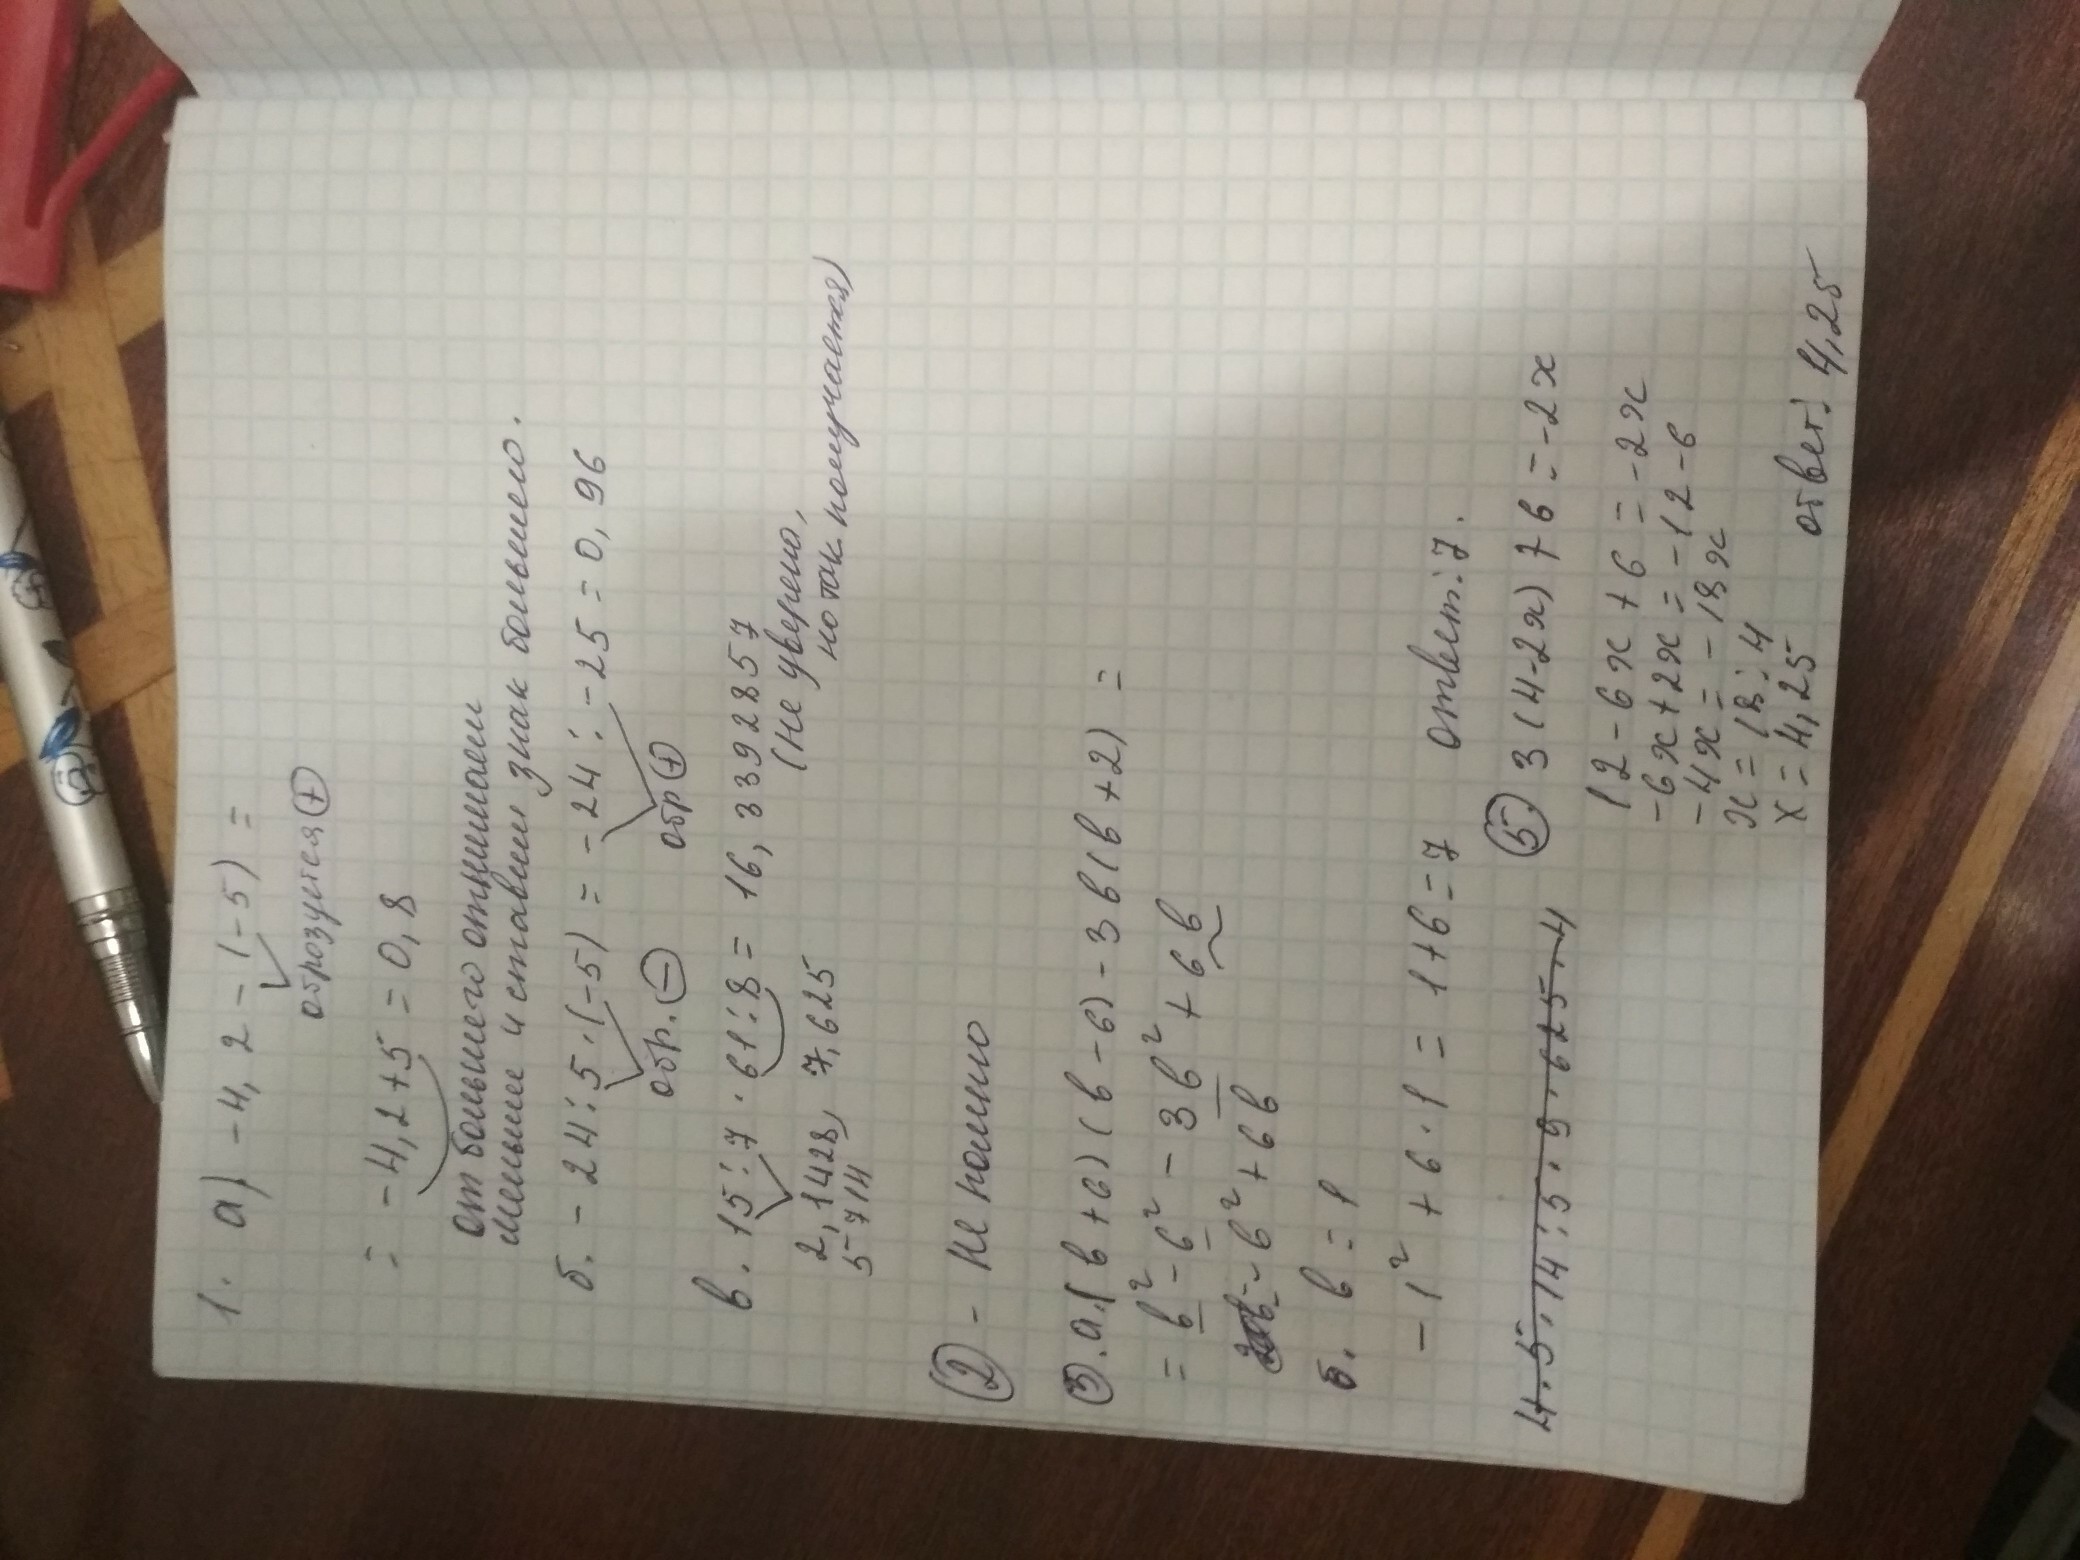 1. а) -4,2-(-5) =
образуется +
= -4,2+5 = 0,8
от большего отнимаем
меньшее и ставим знак большего.
б. -24:5·(-5) = -24:-25 = 0,96
обр. - обр +
в. 15:7·61:8 = 16,3392857
2,1428 7,625
5714
(не уверена,
но так получается)
2 - не помню
3. а.(в+6)(в-6)-3в(в+2) =
= в²-6²-3в²+6в
-6²+6в
б. в=1
-1²+6·1 = 1+6=7 ответ:7.
4.5.14:5·9·625·4
5. 3(4-2х)76=-2х
12-6х+6=-2х
-6х+2х=-12-6
-4х=-18х
х=18:4
х=4,25 ответ: 4,25